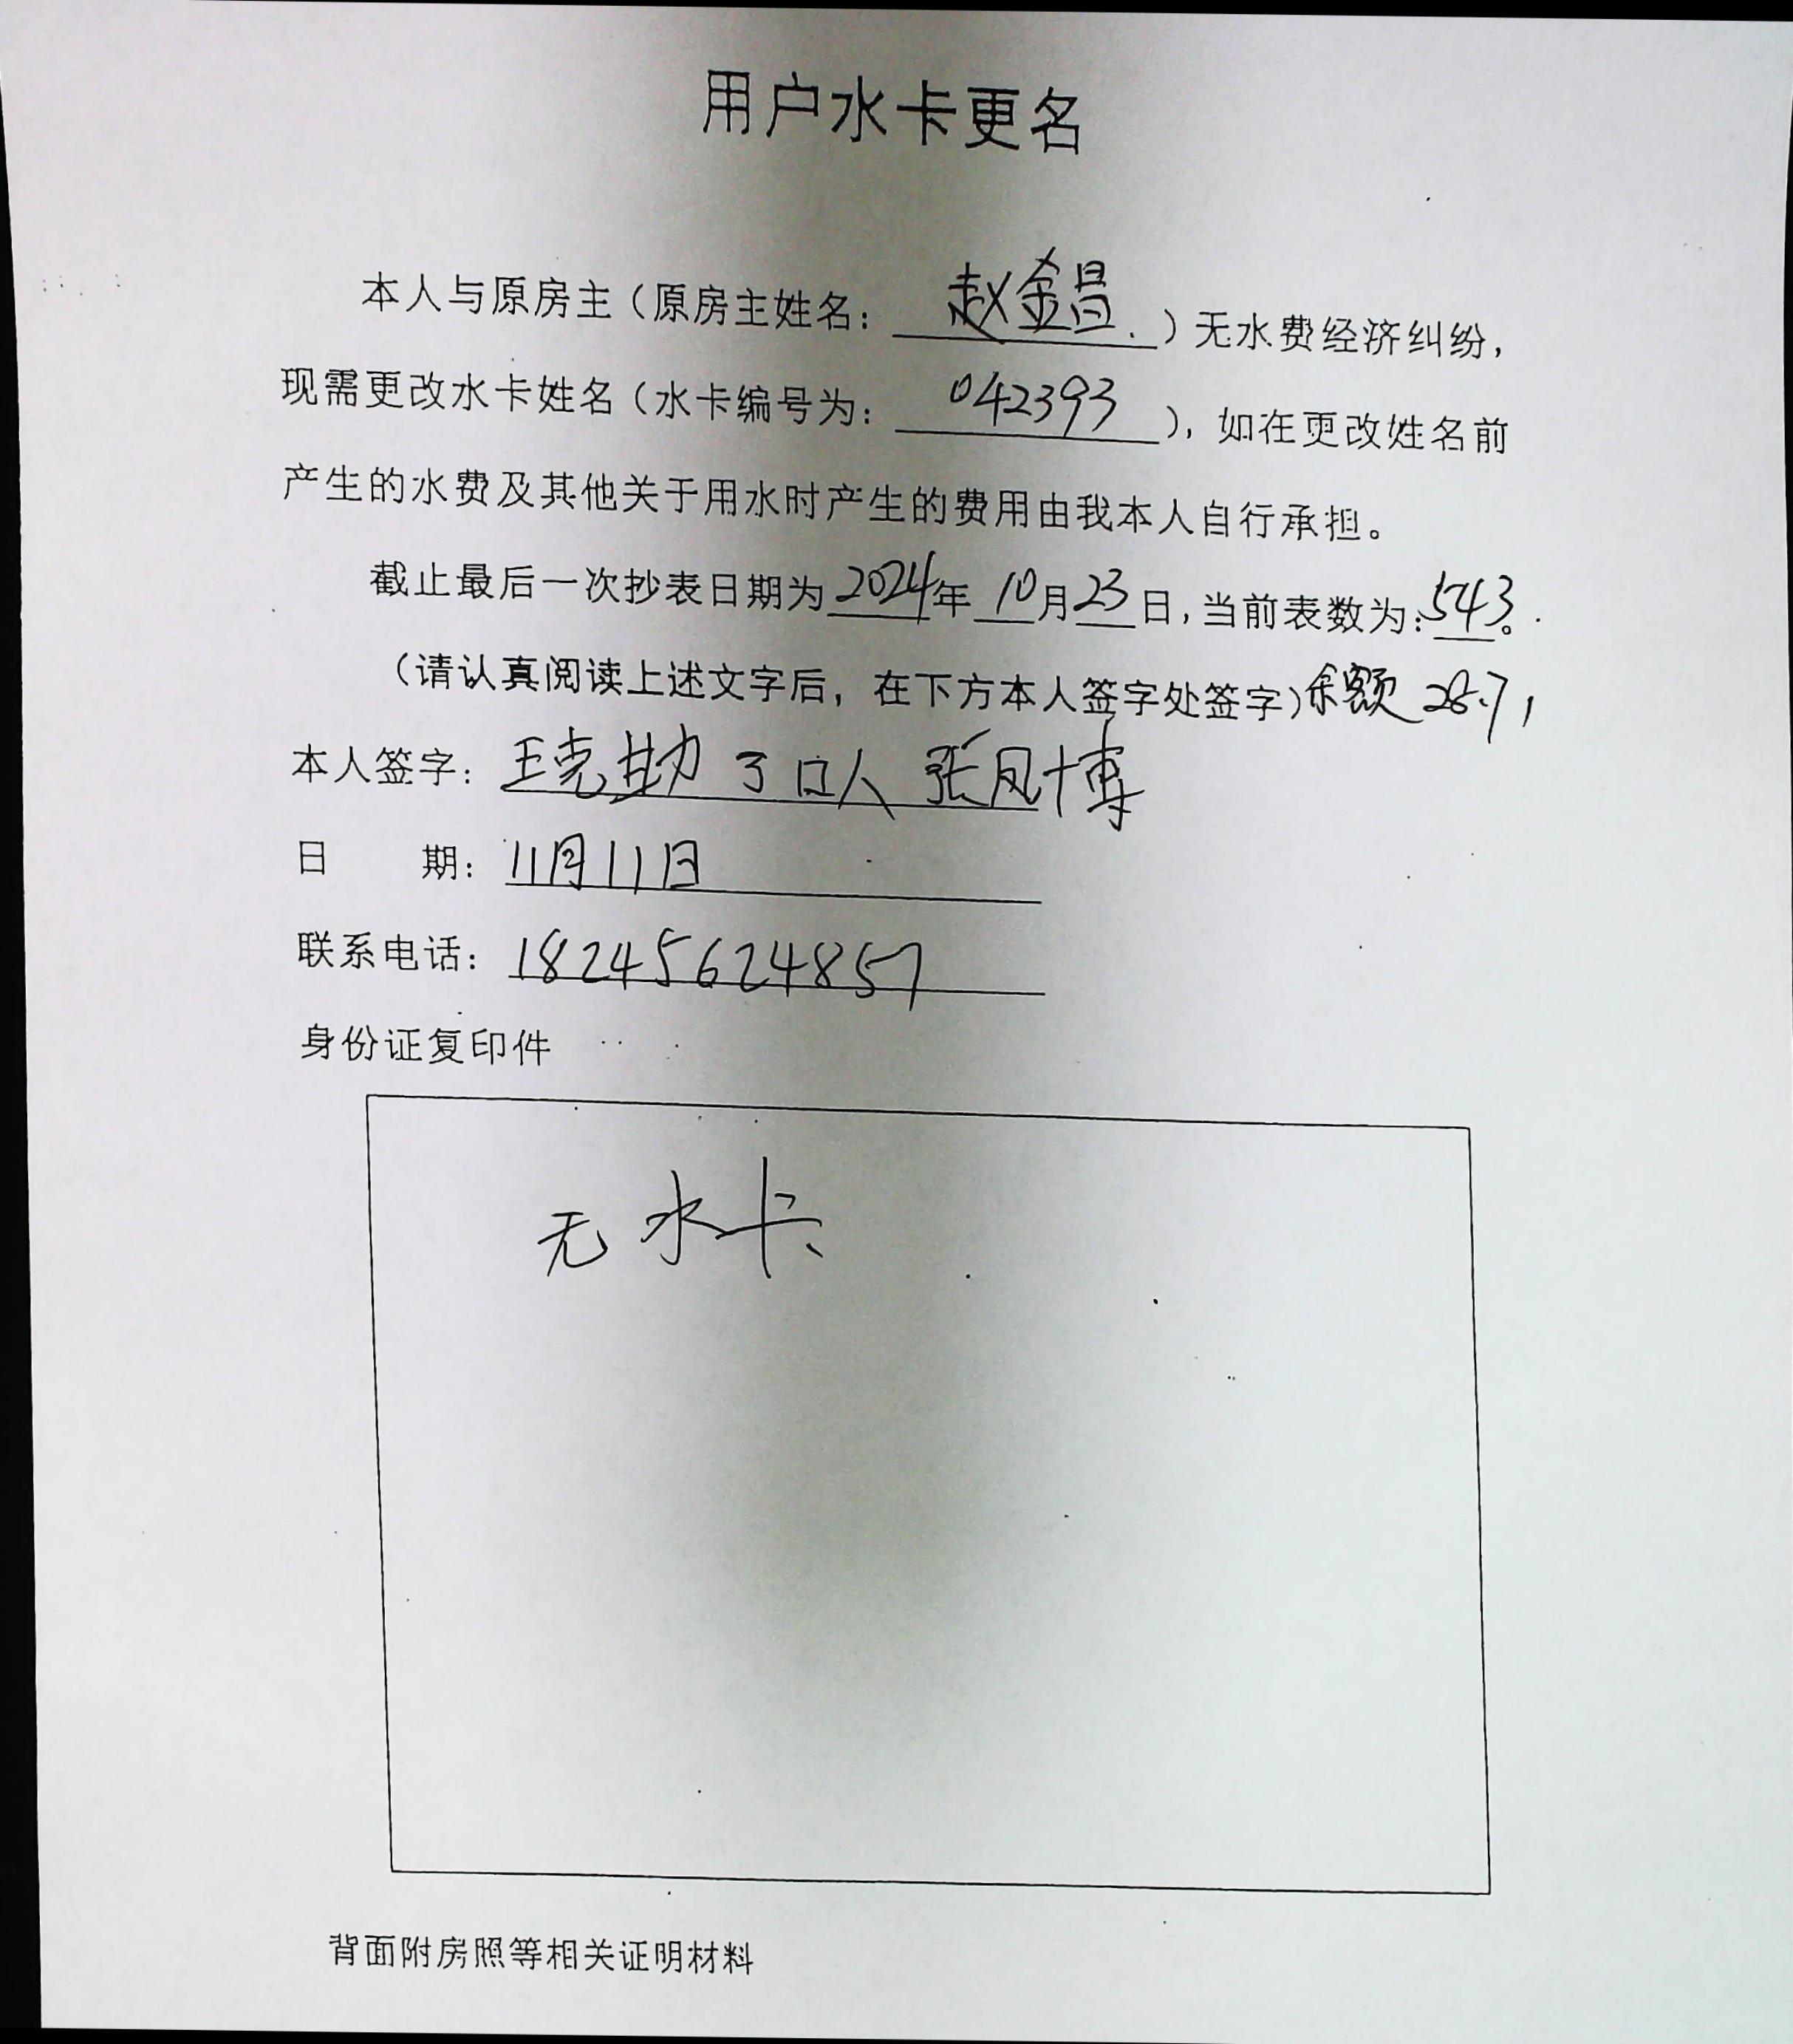 用户水卡更名
本人与原房主（原房主姓名：赵金昌）无水费经济纠纷，
现需更改水卡姓名（水卡编号为：042393），如在更改姓名前
产生的水费及其他关于用水时产生的费用由我本人自行承担。
截止最后一次抄表日期为2024年10月23日，当前表数为：543。
（请认真阅读上述文字后，在下方本人签字处签字）余额 28.71
本人签字：王克勋 3口人 张凤博
日 期：11月11日
联系电话：18245624857
身份证复印件
无水卡
背面附房照等相关证明材料